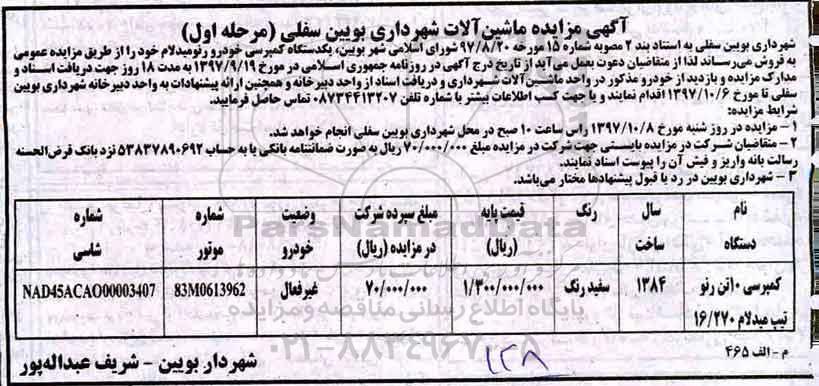 آگهی مزایده ماشین‌آلات شهرداری بویین سفلی (مرحله اول)
شهرداری بویین سفلی به استناد بند ۲ مصوبه شماره ۱۵ مورخه ۹۷/۸/۲۰ شورای اسلامی شهر بویین، یکدستگاه کمپرسی خودرو رنومیدلام خود را از طریق مزایده عمومی
به فروش می‌رساند لذا از متقاضیان دعوت بعمل می‌آید از تاریخ درج آگهی در روزنامه جمهوری اسلامی در مورخ ۱۳۹۷/۹/۱۹ به مدت ۱۸ روز جهت دریافت اسناد و
مدارک مزایده و بازدید از خودرو مذکور در واحد ماشین‌آلات شهرداری و دریافت اسناد از واحد دبیرخانه و همچنین ارائه پیشنهادات به واحد دبیرخانه شهرداری بویین
سفلی تا مورخ ۱۳۹۷/۱۰/۶ اقدام نمایند و یا جهت کسب اطلاعات بیشتر با شماره تلفن ۰۸۷۳۴۴۱۳۲۰۷ تماس حاصل فرمایید.
شرایط مزایده:
۱ – مزایده در روز شنبه مورخ ۱۳۹۷/۱۰/۸ راس ساعت ۱۰ صبح در محل شهرداری بویین سفلی انجام خواهد شد.
۲ – متقاضیان شرکت در مزایده بایستی جهت شرکت در مزایده مبلغ ۷۰/۰۰۰/۰۰۰ ریال به صورت ضمانتنامه بانکی یا به حساب ۵۳۸۳۷۸۹۰۶۹۲ نزد بانک قرض‌الحسنه
رسالت بانه واریز و فیش آن را پیوست اسناد نمایند.
۳ – شهرداری بویین در رد یا قبول پیشنهادها مختار می‌باشد.
نام دستگاه سال ساخت رنگ قیمت پایه (ریال) مبلغ سپرده شرکت در مزایده (ریال) وضعیت خودرو شماره موتور شماره شاسی
کمپرسی ۱۰تن رنو تیپ میدلام ۱۶/۲۷۰ ۱۳۸۴ سفید رنگ ۱/۳۰۰/۰۰۰/۰۰۰ ۷۰/۰۰۰/۰۰۰ غیرفعال 83M0613962 NAD45ACAO00003407
ParsNamadData
پایگاه اطلاع رسانی مناقصه و مزایده
م – الف ۴۶۵
۱۲۸
شهردار بویین – شریف عبداله‌پور